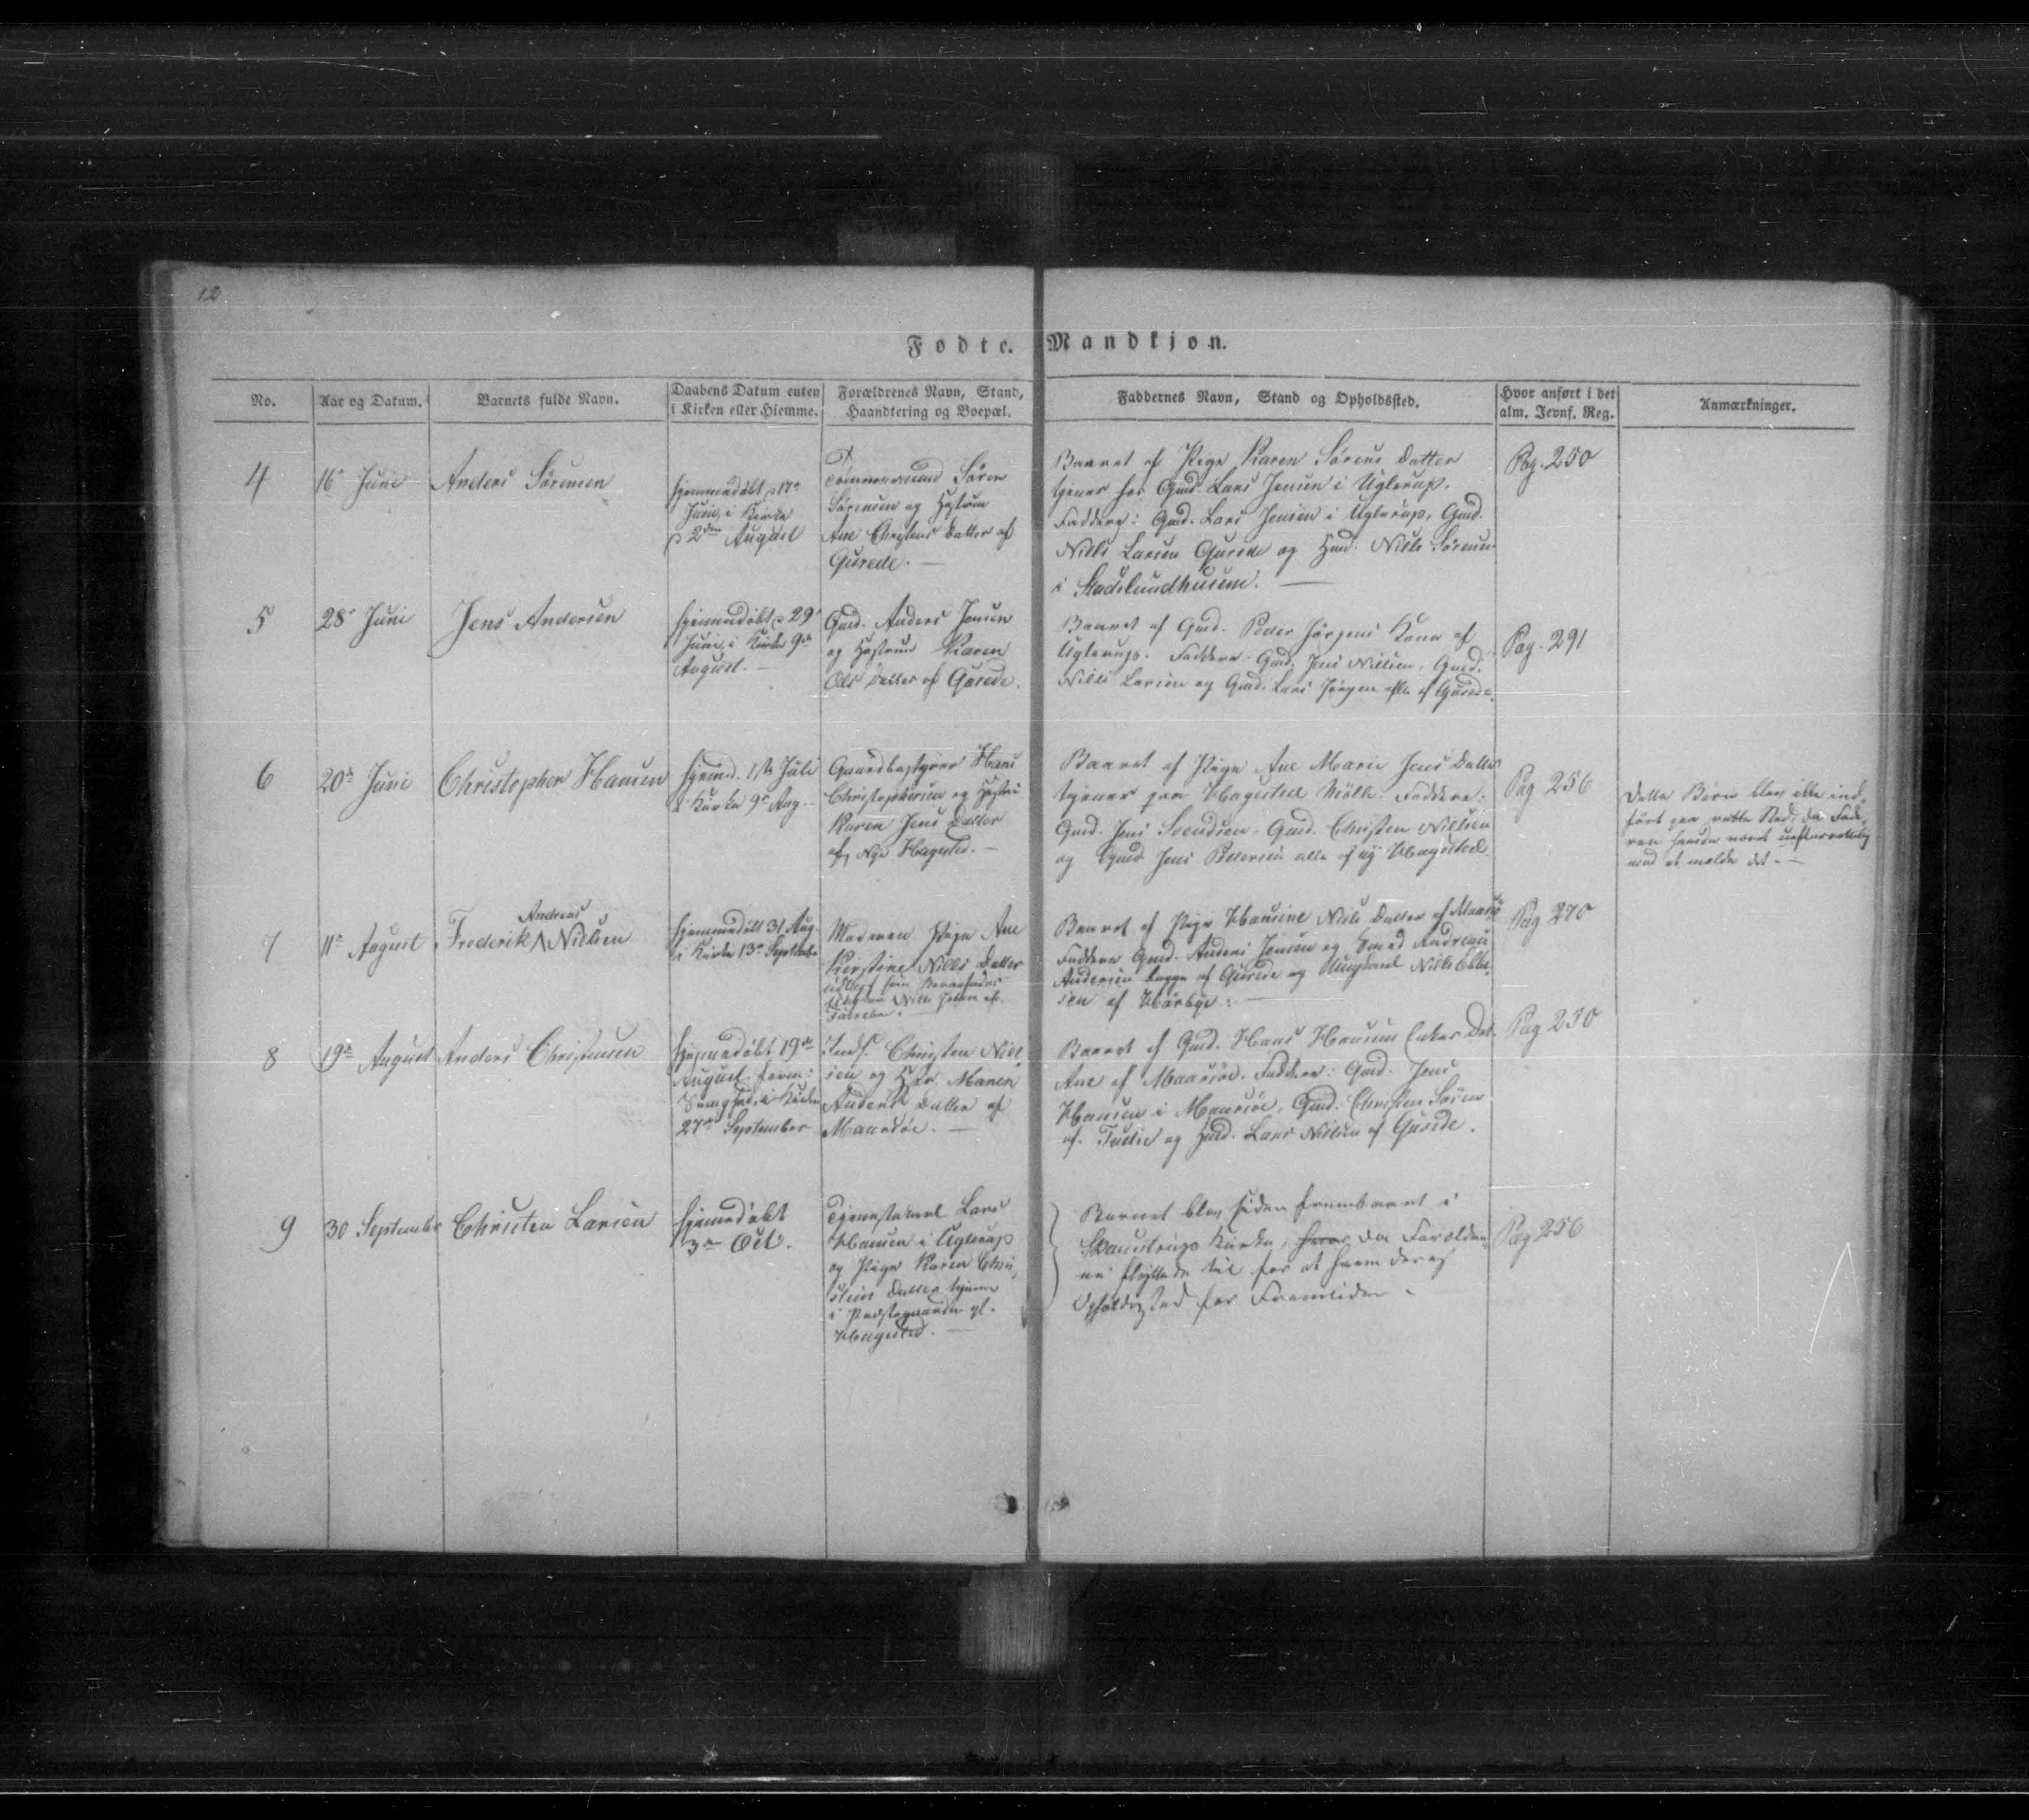 12
Fødte. Mandkjøn.
No.
Aar og Datum.
Barnets fulde Navn.
Daabens Datum enten
i Kirken eller Hiemme.
Forældrenes Navn, Stand,
Haandtering og Boepæl.
Faddernes Navn, Stand og Opholdssted.
Hvor anført i det
alm. Jevnf. Reg.
Anmærkninger.
4
16 Juni
Anders Sørensen
hjemmedøbt 17
Juni, i Kirke
2den August
Tømmermand Søren
Sørensen og Hustrue
Ane Datter af
Gurede.
Baaret af Pige Karen Sørens Datter
tjener hos Gmd. Lars Jensen i Uglerup.
Faddere: Gmd. Lars Jensen i Uglerup, Gmd.
Niels Larsen Gurede og Hmd. Niels Sørensen
i
Pag. 250
5
28 Juni
Jens Andersen
hjemmedøbt 29
Juni, i Kirke 9de
August.
Gmd. Anders Jensen
og Hustrue Karen
Ols Datter af Gurede.
Baaret af Gmd. Peder Jørgens Kone af
Uglerup. Faddere Gmd. Jens Nielsen, Gmd.
Niels Larsen og Gmd. Lars Jørgen alle af Gurede.
Pag. 291
6
20de Juni
Christopher Hansen
hjemmed. 1ste Juli
i Kirke 9 Aug.
Gaardbestyrer Hans
Christophersen og Hustrue
Karen Jens Datter
af Nye Hagested.
Baaret af Pige Ane Marie Jens Datter
tjener paa Hagested Mølle. Faddere:
Gmd. Jens Svendsen, Gmd. Christen Nielsen
og Gmd. Jens Petersen alle af ny Hagested.
Pag 256
Dette Barn blev ikke ind-
ført paa rette Sted, da Fade-
ren havde været uefterrettelig
med at melde det.
7
11 August
Andreas
Frederik ∧ Nielsen
hjemmedøbt 31 Aug.
i Kirke 13 September
Moderen Pige Ane
Kirstine Niels Datter
udlagt som Barnefader
Niels
Baaret af Pige Hansine Niels Datter af Maarsø
Faddere Gmd. Anders Jensen og Smed Andreas
Andersen begge af Gurede og Ungkarl Niels
sen af Hørbye.
Pag 270
8
19de August
Anders Christensen
hjemmedøbt 19de
August
i Kirken
27de September
Inds. Christen Niel-
sen og Maren
Anders Datter af
Maarsøe.
Baaret af Gmd. Hans Hansens Enkes Dat.
Ane af Maarsøe. Faddere: Gmd. Jens
Hansen i Maarsøe, Gmd. Christen Søren
af Tudse og Hmd. Lars Nielsen af Gurede.
Pag 250
9
30 September
Christen Larsen
hjemmedøbt
3 Oct.
Tjenestekarl Lars
Hansen i Uglerup
og Pige Karen Chri-
stens Datter tjener
i Præstegaarden gl.
Hagested.
Barnet blev siden frembaaret i
Skamstrups Kirke, hvor da Forældre-
ne flyttede til for at have deres
Opholdssted for Fremtiden.
Pag 256